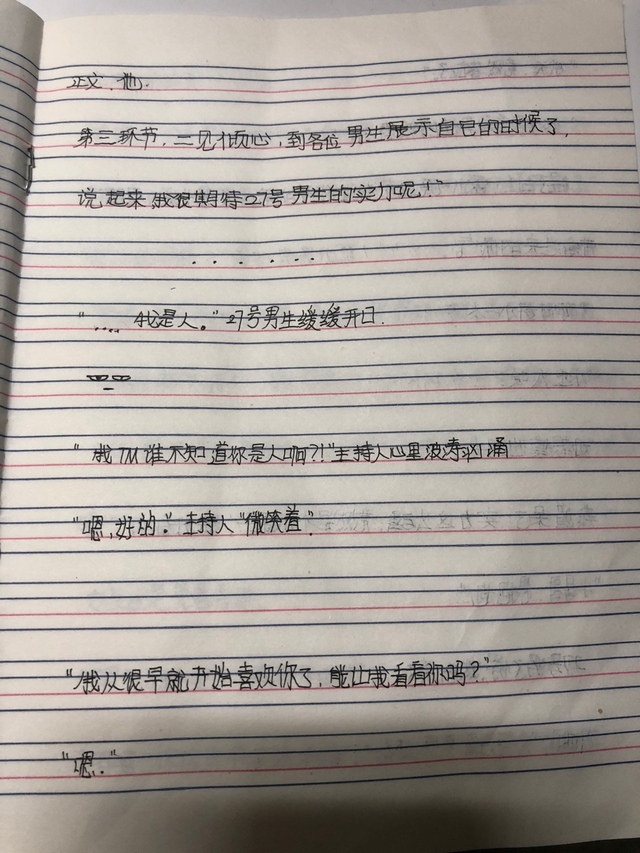 正文、他.
第三环节,二见倾心,到各位男生展示自己的时候了,
说起来我很期待27号男生的实力呢!"
. . . . . .
".... 我是人。"27号男生缓缓开口.
"我TM谁不知道你是人啊?!"主持人心里波涛汹涌
"嗯,好的."主持人"微笑着".
"我从很早就开始喜欢你了,能让我看看你吗?"
"嗯."